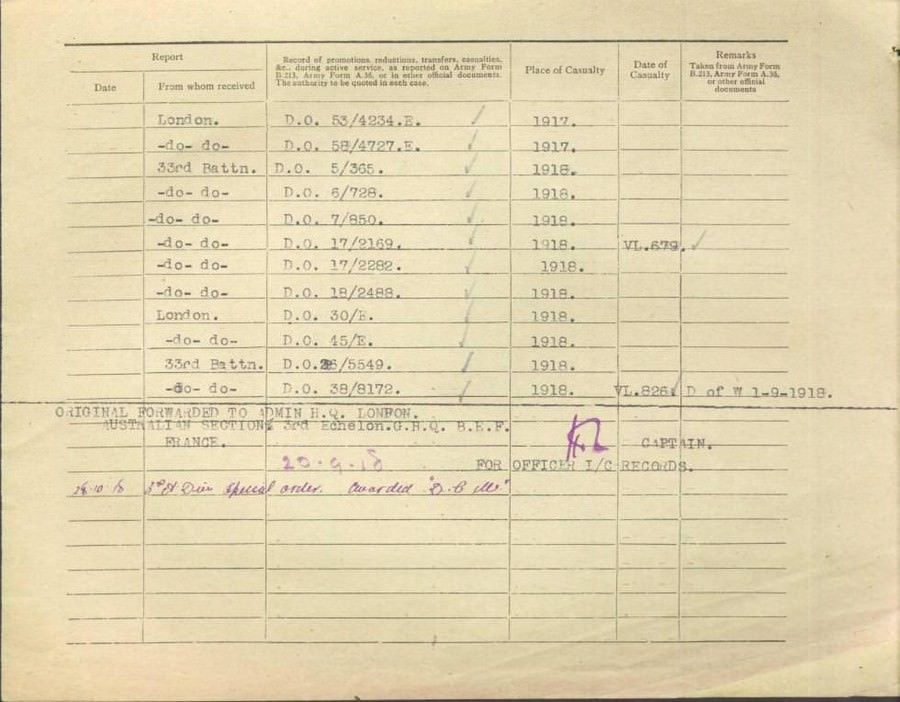 Report
Record of promotions, reductions, transfers, casualties, &c., during active service, as reported on Army Form B.213, Army Form A.36, or in other official documents. The authority to be quoted in each case.
Place of Casualty
Date of Casualty
Remarks
Taken from Army Form B.213, Army Form A.36, or other official documents
Date
From whom received
London. D.O. 53/4234.E. 1917.
-do- do- D.O. 58/4727.E. 1917.
33rd Battn. D.O. 5/365. 1918.
-do- do- D.O. 6/728. 1918.
-do- do- D.O. 7/850. 1918.
-do- do- D.O. 17/2169. 1918. VL.679.
-do- do- D.O. 17/2282. 1918.
-do- do- D.O. 18/2488. 1918.
London. D.O. 30/E. 1918.
-do- do- D.O. 45/E. 1918.
33rd Battn. D.O.26/5549. 1918.
-do- do- D.O. 38/8172. 1918. VL.826. D of W 1-9-1918.
ORIGINAL FORWARDED TO ADMIN H.Q. LONDON.
AUSTRALIAN SECTION 3rd Echelon.G.H.Q. B.E.F.
FRANCE. CAPTAIN.
20-9-18 FOR OFFICER I/C RECORDS.
28-10-18 3rd A Div Special order. Awarded "D.C.M."